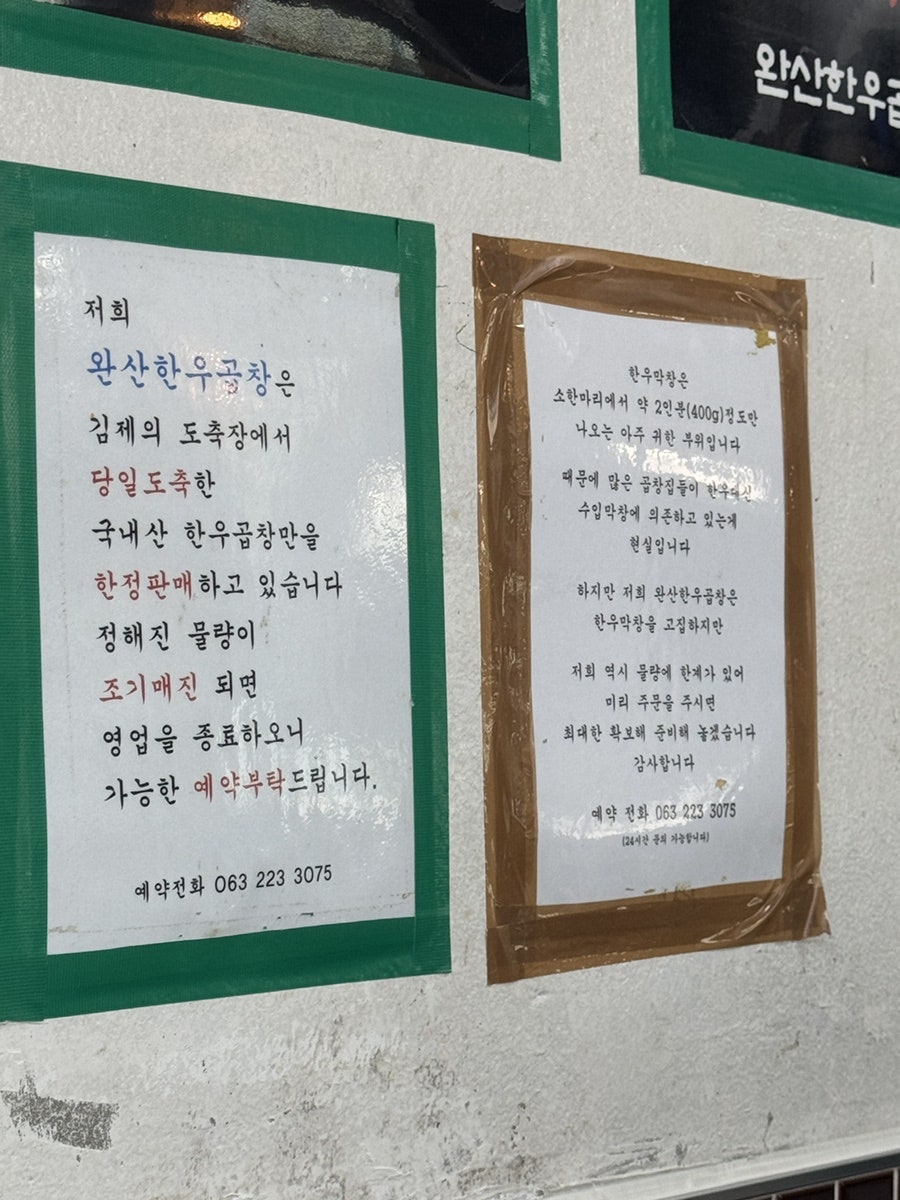 완산한우곱
저희
완산한우곱창은
김제의 도축장에서
당일도축한
국내산 한우곱창만을
한정판매하고 있습니다
정해진 물량이
조기매진 되면
영업을 종료하오니
가능한 예약부탁드립니다.
예약전화 063 223 3075
한우막창은
소한마리에서 약 2인분(400g)정도만
나오는 아주 귀한 부위입니다
때문에 많은 곱창집들이 한우대신
수입막창에 의존하고 있는게
현실입니다
하지만 저희 완산한우곱창은
한우막창을 고집하지만
저희 역시 물량에 한계가 있어
미리 주문을 주시면
최대한 확보해 준비해 놓겠습니다
감사합니다
예약 전화 063 223 3075
(24시간 문의 가능합니다)